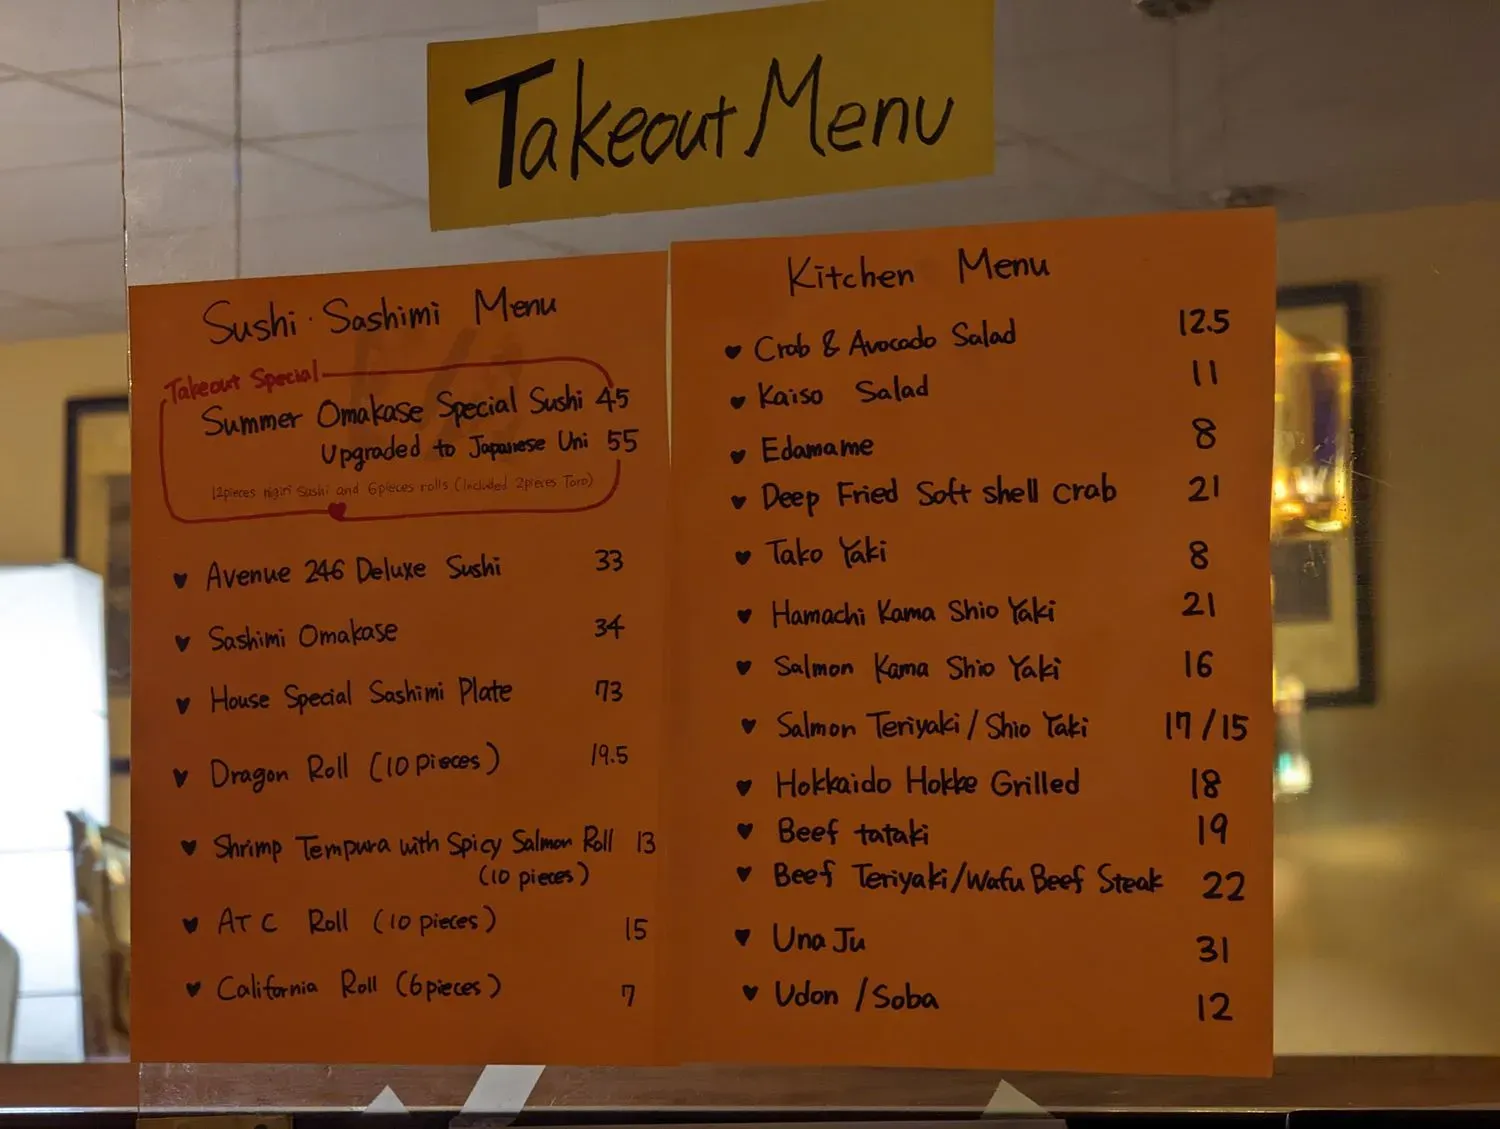 Takeout Menu
Sushi · Sashimi Menu
Takeout Special
Summer Omakase Special Sushi 45
Upgraded to Japanese Uni 55
12pieces nigiri Sushi and 6pieces rolls (Included 2pieces Toro)
♥ Avenue 246 Deluxe Sushi 33
♥ Sashimi Omakase 34
♥ House Special Sashimi Plate 73
♥ Dragon Roll (10 pieces) 19.5
♥ Shrimp Tempura with Spicy Salmon Roll 13
(10 pieces)
♥ ATC Roll (10 pieces) 15
♥ California Roll (6pieces) 7
Kitchen Menu
♥ Crab & Avocado Salad 12.5
♥ Kaiso Salad 11
♥ Edamame 8
♥ Deep Fried Soft shell crab 21
♥ Tako Yaki 8
♥ Hamachi Kama Shio Yaki 21
♥ Salmon Kama Shio Yaki 16
♥ Salmon Teriyaki / Shio Yaki 17/15
♥ Hokkaido Hokke Grilled 18
♥ Beef tataki 19
♥ Beef Teriyaki/Wafu Beef Steak 22
♥ Una Ju 31
♥ Udon / Soba 12